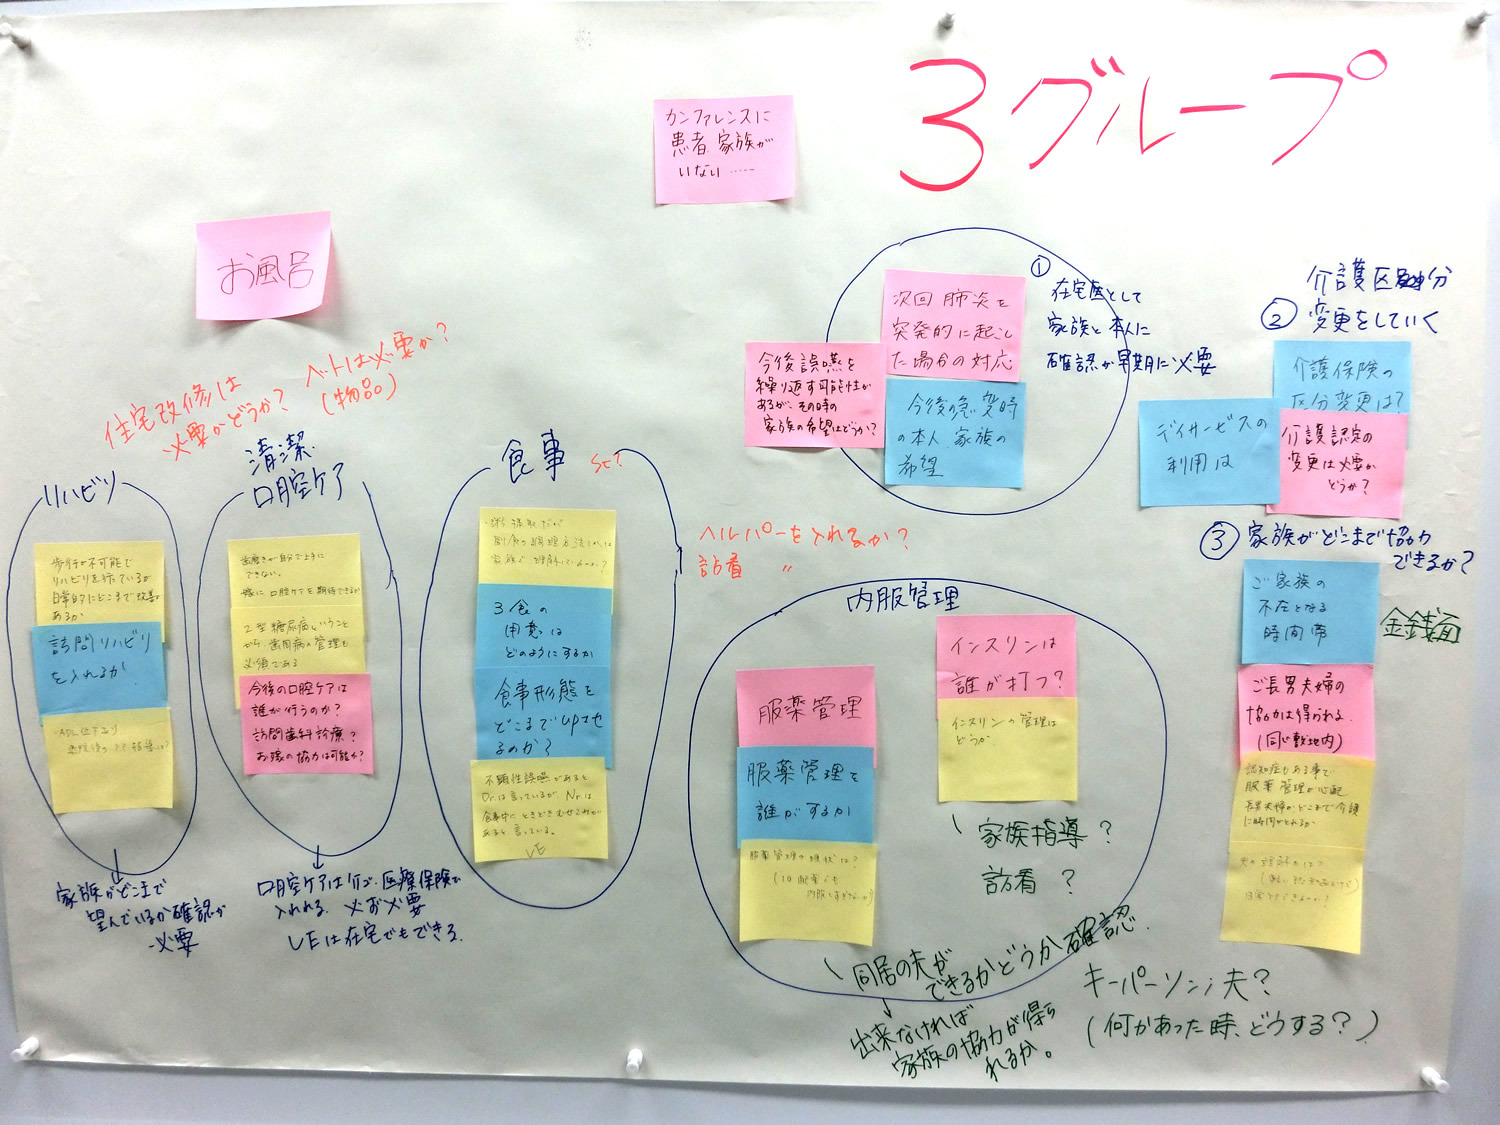 3グループ
カンファレンスに
患者、家族が
いない……
お風呂
住宅改修は
必要かどうか?
ベットは必要か?
(物品)
リハビリ
歩行が不可能で
リハビリを行っているが
日常的にどこまで改善が
あるか
訪問リハビリ
を入れるか
・ADL低下あり
家族がどこまで
望んでいるか確認が
必要
清潔
口腔ケア
歯磨きが自分で上手に
できない。
嫁に口腔ケアを期待できるか
2型糖尿病ということ
から、歯周病の管理も
必須である
今後の口腔ケアは
誰が行うのか?
訪問歯科診療?
お嫁の協力は可能か?
口腔ケアは介ゴ、医療保険で
入れる。必お必要
VEは在宅でもできる.
食事
ST?
3食の
用意は
どのようにするか
食事形態を
どこまでupさせ
るのか?
不顕性誤嚥であると
Dr.は言っているが、Nr.は
食事中にときどきむせこみが
あると言っている。
VE
ヘルパーを入れるか?
訪看 〃
①
在宅医として
家族と本人に
確認が早期に必要
次回肺炎を
突発的に起こし
た場合の対応
今後誤嚥を
繰り返す可能性が
あるが、その時の
家族の希望はどうか?
今後の急変時
の本人、家族の
希望
②
介護区分
変更をしていく
介護保険の
区分変更は?
デイサービスの
利用は
介護認定の
変更は必要か
どうか?
③ 家族がどこまで協力
できるか?
ご家族の
不在となる
時間帯
金銭面
ご長男夫婦の
協力は得られる.
(同じ敷地内)
認知症もある事で
服薬管理が心配
長男夫婦がどこまで介護
に時間がとれるか
キーパーソン;夫?
(何かあった時、どうする?)
内服管理
服薬管理
服薬管理を
誰がするか
服薬管理の現状は?
インスリンは
誰が打つ?
インスリンの管理は
どうか
家族指導?
訪看?
同居の夫が
できるかどうか確認.
出来なければ
家族の協力が得ら
れるか。